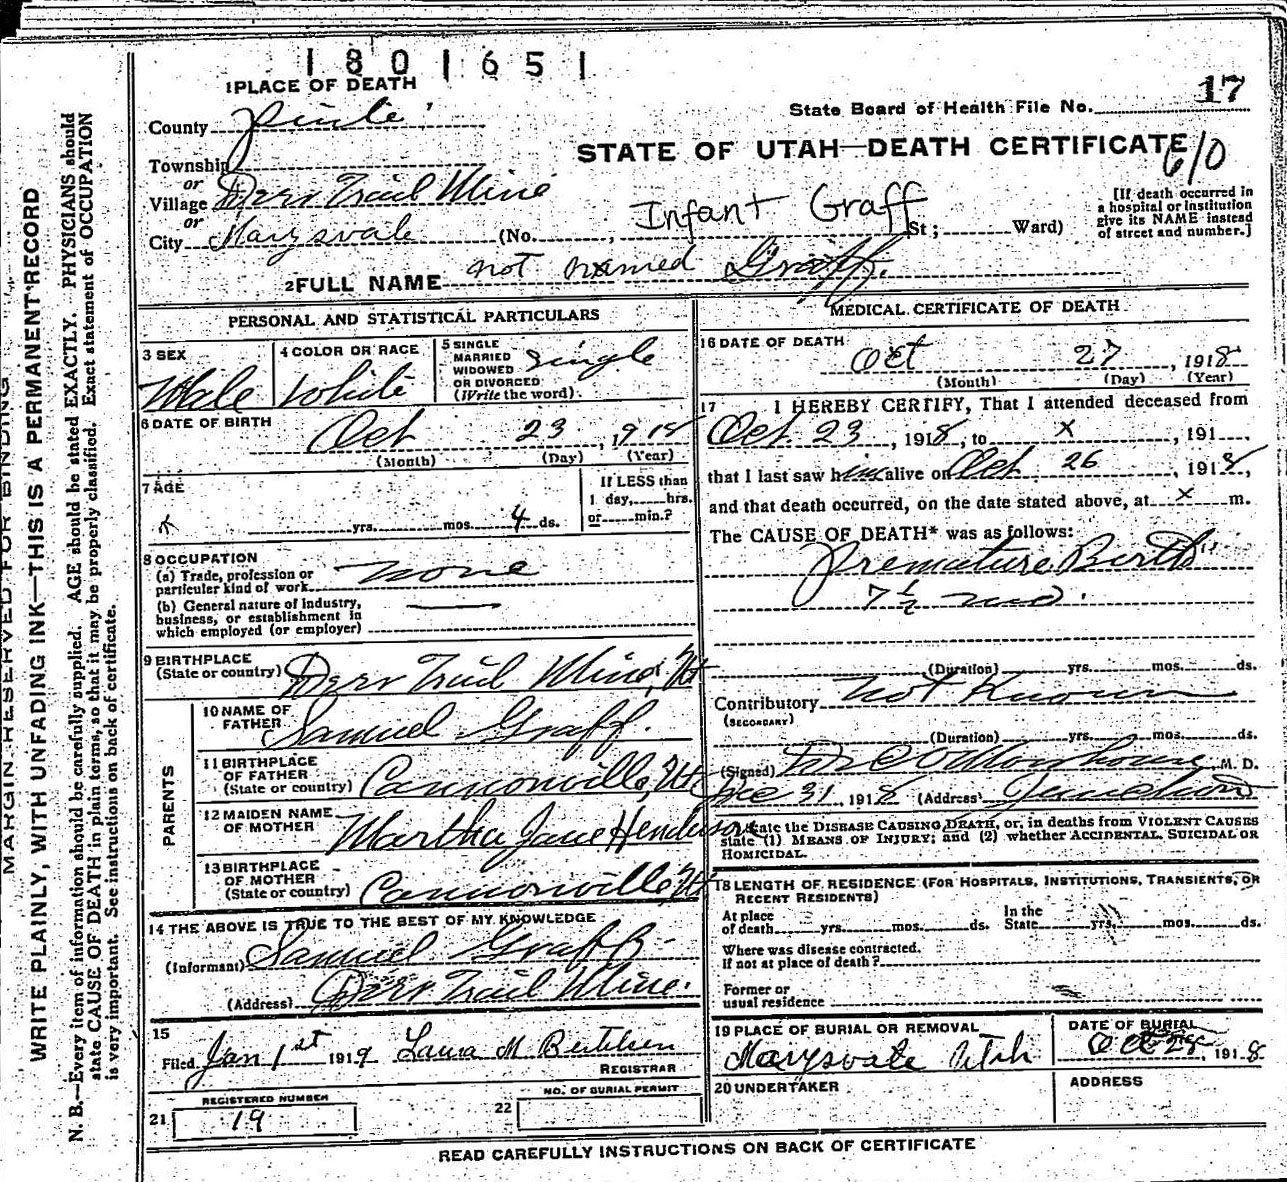 1801651
1 PLACE OF DEATH
17
State Board of Health File No.
County Piute
STATE OF UTAH—DEATH CERTIFICATE
610
Township
or
Village Deer Trail Mine
or
City Marysvale (No. , Infant Graff St; Ward)
[If death occurred in
a hospital or institution
give its NAME instead
of street and number.]
2 FULL NAME not named Graff.
PERSONAL AND STATISTICAL PARTICULARS
3 SEX
Male
4 COLOR OR RACE
White
5 SINGLE
MARRIED
WIDOWED
OR DIVORCED
(Write the word)
Single
6 DATE OF BIRTH
Oct 23, 1918
(Month) (Day) (Year)
7 AGE
yrs. mos. 4 ds.
If LESS than
1 day, hrs.
or min.?
8 OCCUPATION
(a) Trade, profession or
particular kind of work none
(b) General nature of industry,
business, or establishment in
which employed (or employer)
9 BIRTHPLACE
(State or country) Deer Trail Mine, Ut
PARENTS
10 NAME OF
FATHER Samuel Graff.
11 BIRTHPLACE
OF FATHER
(State or country) Cannonville, Ut
12 MAIDEN NAME
OF MOTHER Martha Jane Henderson
13 BIRTHPLACE
OF MOTHER
(State or country) Cannonville, Ut
14 THE ABOVE IS TRUE TO THE BEST OF MY KNOWLEDGE
(Informant) Samuel Graff
(Address) Deer Trail Mine.
15
Filed Jan 1st 1919 Laura M Bertelsen
REGISTRAR
REGISTERED NUMBER
21 19
NO. OF BURIAL PERMIT
22
MEDICAL CERTIFICATE OF DEATH
16 DATE OF DEATH
Oct 27, 1918
(Month) (Day) (Year)
17 I HEREBY CERTIFY, That I attended deceased from
Oct. 23, 1918, to x, 191
that I last saw him alive on Oct 26, 1918,
and that death occurred, on the date stated above, at x m.
The CAUSE OF DEATH* was as follows:
Premature Birth
7 1/2 mo.
(Duration) yrs. mos. ds.
Contributory Not Known
(SECONDARY)
(Duration) yrs. mos. ds.
(Signed) M. D.
Dec 31 1918 (Address)
State the DISEASE CAUSING DEATH, or, in deaths from VIOLENT CAUSES
state (1) MEANS OF INJURY; and (2) whether ACCIDENTAL, SUICIDAL OR
HOMICIDAL.
18 LENGTH OF RESIDENCE (FOR HOSPITALS, INSTITUTIONS, TRANSIENTS, OR
RECENT RESIDENTS)
At place
of death yrs. mos. ds.
In the
State yrs. mos. ds.
Where was disease contracted.
If not at place of death?
Former or
usual residence
19 PLACE OF BURIAL OR REMOVAL
Marysvale Utah
DATE OF BURIAL
Oct 28, 1918
20 UNDERTAKER
ADDRESS
READ CAREFULLY INSTRUCTIONS ON BACK OF CERTIFICATE
MARGIN RESERVED FOR BINDING
WRITE PLAINLY, WITH UNFADING INK—THIS IS A PERMANENT RECORD
N. B.—Every item of information should be carefully supplied. AGE should be stated EXACTLY. PHYSICIANS should
state CAUSE OF DEATH in plain terms, so that it may be properly classified. Exact statement of OCCUPATION
is very important. See instructions on back of certificate.